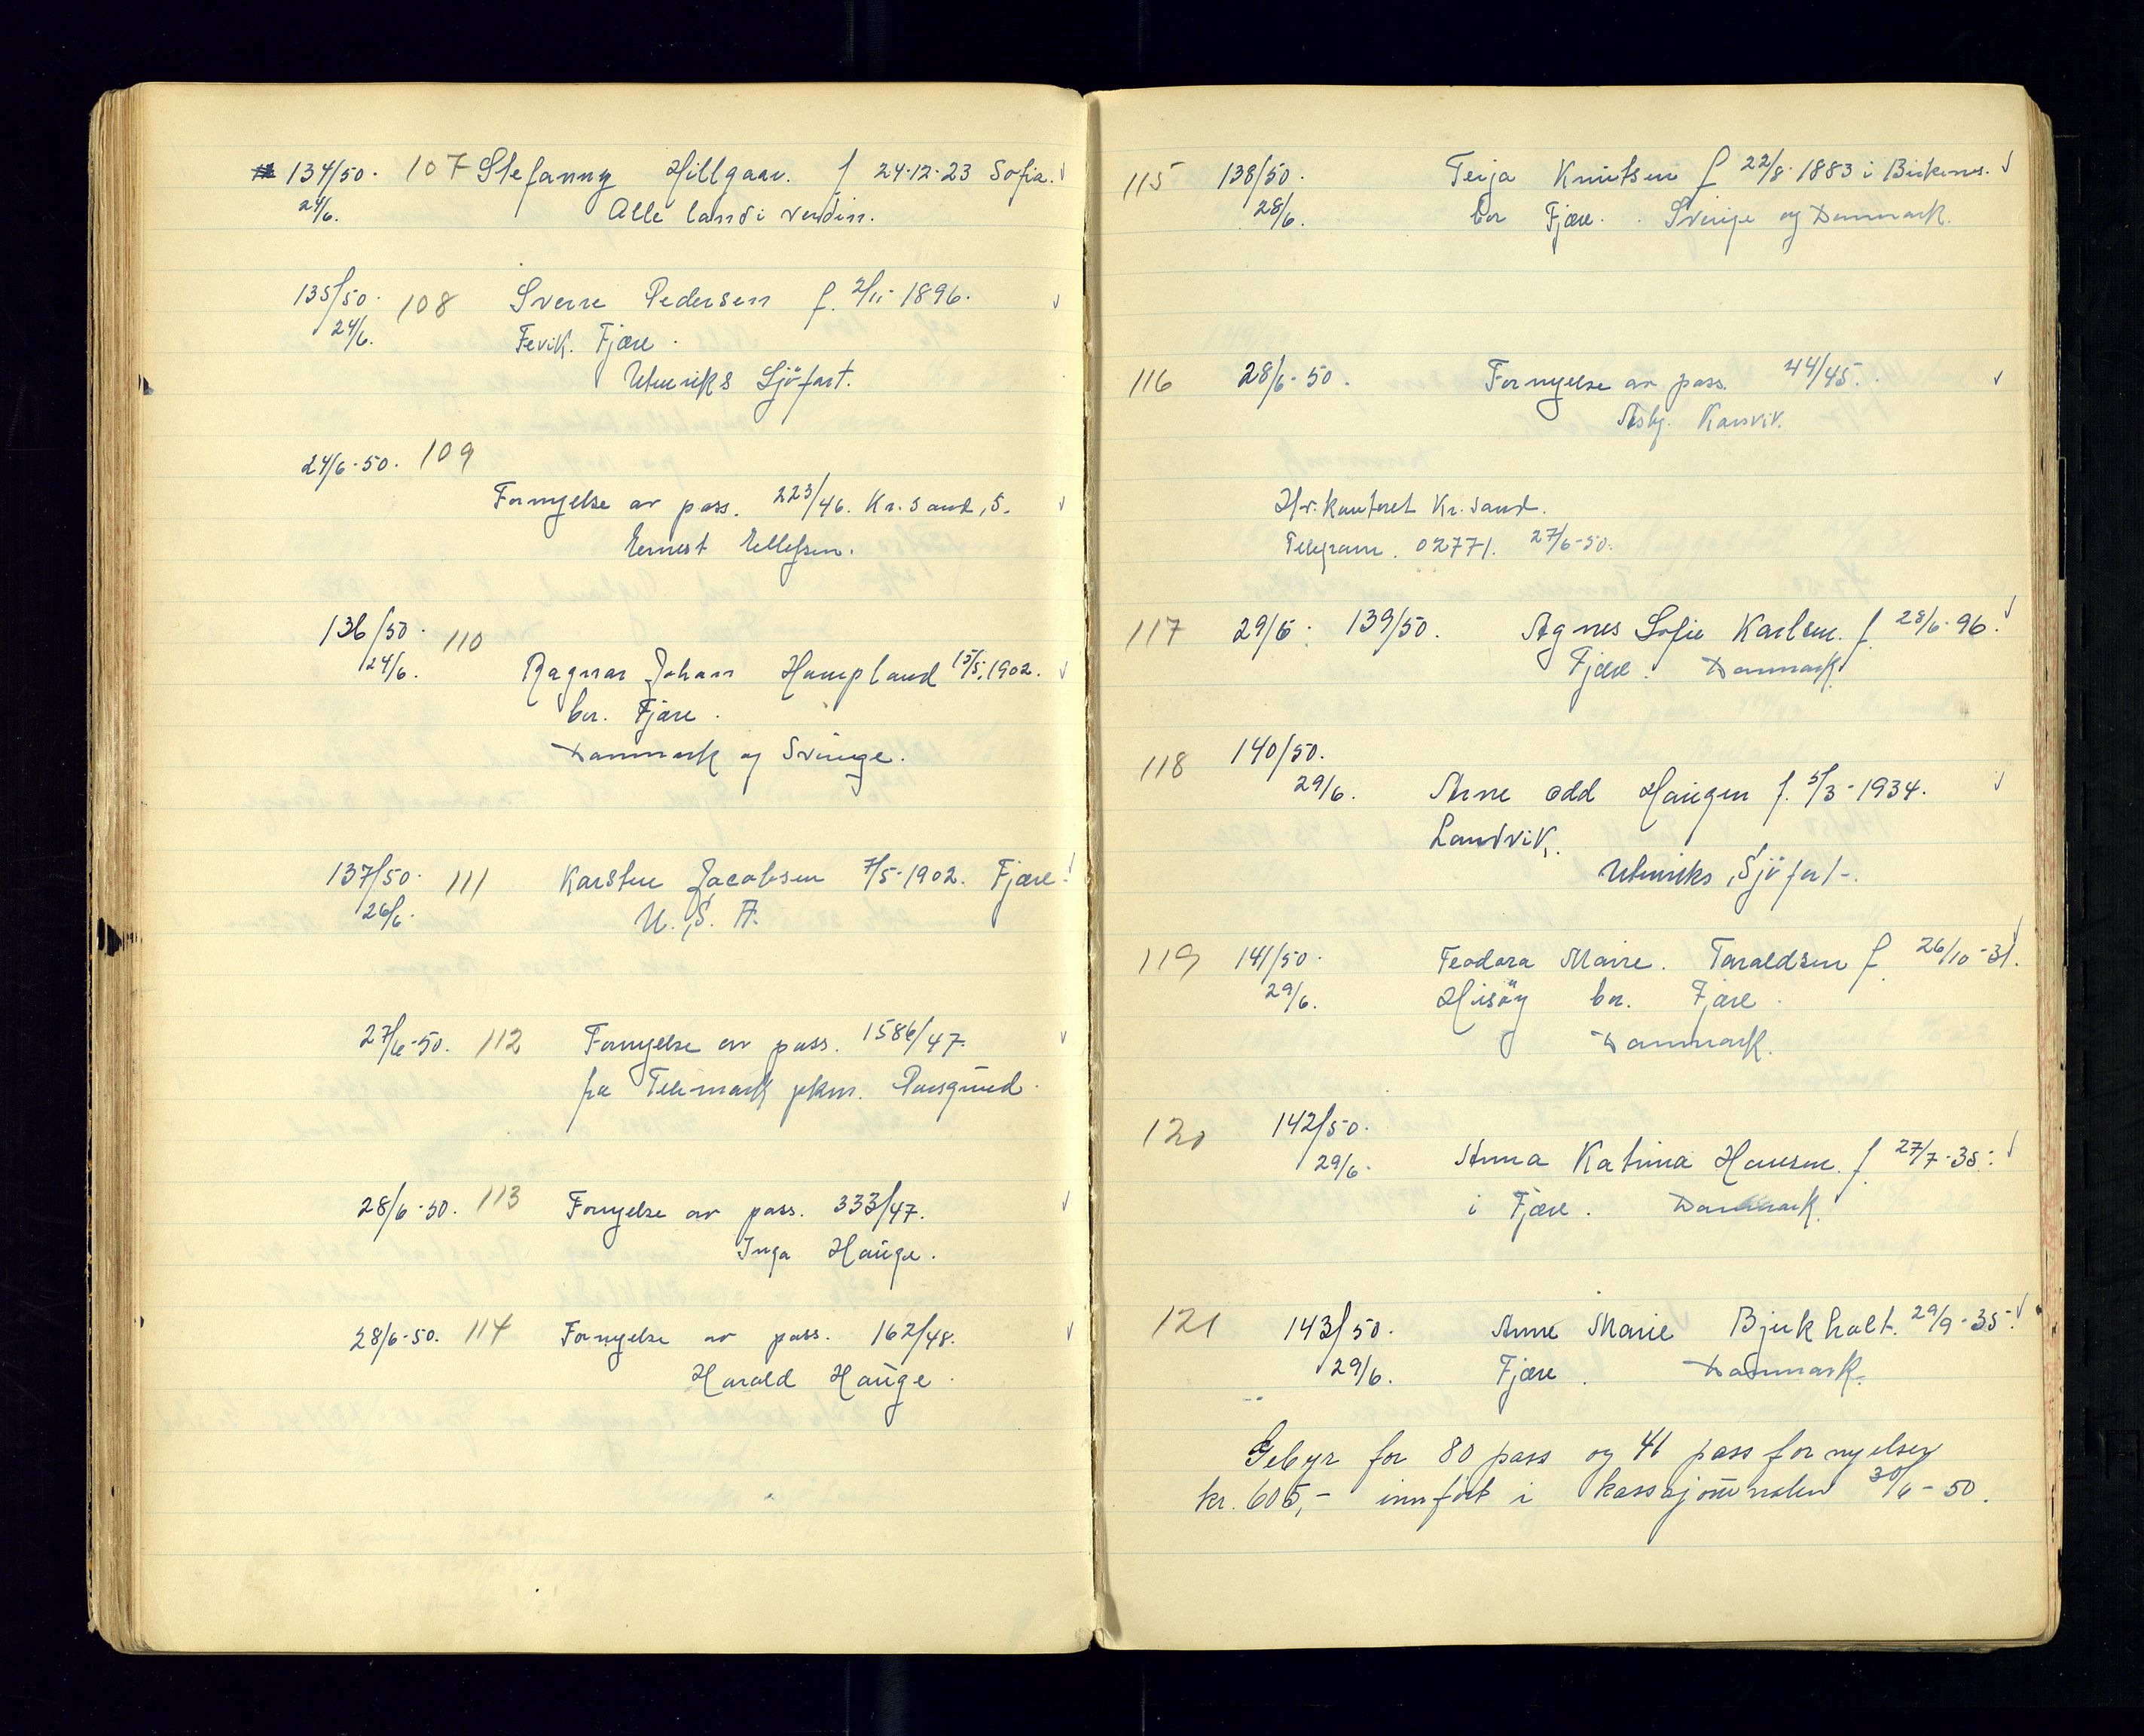 134/50. 107 Stefanny Hillgaar. f 24-12-23 Sofia.
24/6. Alle land i verden.
135/50. 108 Sverre Pedersen f. 2/11-1896.
24/6. Fevik. Fjære.
Utenriks Sjöfart.
24/6-50. 109
Fornyelse av pass. 223/46. Kr.sand, S.
Ernest Ellefsen.
136/50. 110
24/6. Ragnar Johan Haupland 15/5.1902.
bor. Fjære.
Danmark og Sverige.
137/50. 111 Karsten Jacobsen 7/5-1902. Fjære.
26/6. U.S.A.
27/6-50. 112 Fornyelse av pass. 1586/47.
fra Telemark pkm. Porsgrund.
28/6-50. 113 Fornyelse av pass. 333/47.
Inga Hauge.
28/6-50. 114 Fornyelse av pass. 162/48.
Harald Hauge.
115 138/50. Terja Knutsen f 22/8-1883 i Birkenes.
28/6. bor Fjære. Sverige og Danmark.
116 28/6-50. Fornyelse av pass. 44/45.
Asbj. Karsvik.
Hv.kontoret Kr.sand.
Telegram. 02771. 27/6-50.
117 29/6. 139/50. Agnes Sofie Karlsen. f. 28/6-96.
Fjære. Danmark.
118 140/50.
29/6. Arne Odd Haugen f. 5/3-1934.
Landvik.
Utenriks Sjöfart-.
119 141/50. Teodora Marie. Taraldsen f 26/10-31.
29/6. Hisöy bor. Fjære.
Danmark.
120 142/50.
29/6. Anna Katrina Hansen. f. 27/7-35.
i Fjære. Danmark.
121 143/50. Anne Marie Bjerkholt. 29/9-35.
29/6. Fjære. Danmark.
Gebyr for 80 pass og 41 pass fornyelser
kr. 605,- innfört i kassajournalen 30/6-50.